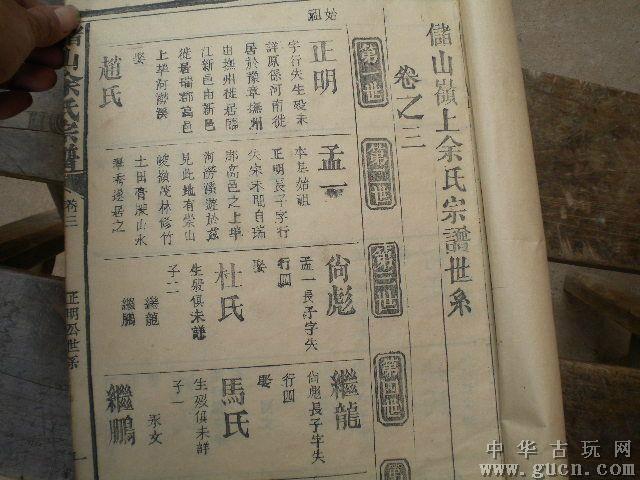 儲山嶺上余氏宗譜世系
卷之三
第一世
第二世
第三世
第四世
第
始祖
正明
字行失生殁未
詳原係河南徙
居於豫章撫州
由撫州徙居臨
江新邑由新邑
徙居瑞郡高邑
上峯河游溪
娶
趙氏
孟一
本基始祖
正明長子字行
失宋末間自瑞
郡高邑之上峯
河游溪遊於茲
見此地有崇山
峻嶺茂林修竹
土田膏深山水
翠秀遂居之
尙彪
孟一長子字失
行四
娶
杜氏
生殁俱未詳
子二
繼龍
繼鵬
繼龍
尙彪長子字失
行四
娶
馬氏
生殁俱未詳
子一
永文
繼鵬
儲山余氏宗譜
卷三
正明公世系
一
中华古玩网
www.gucn.com